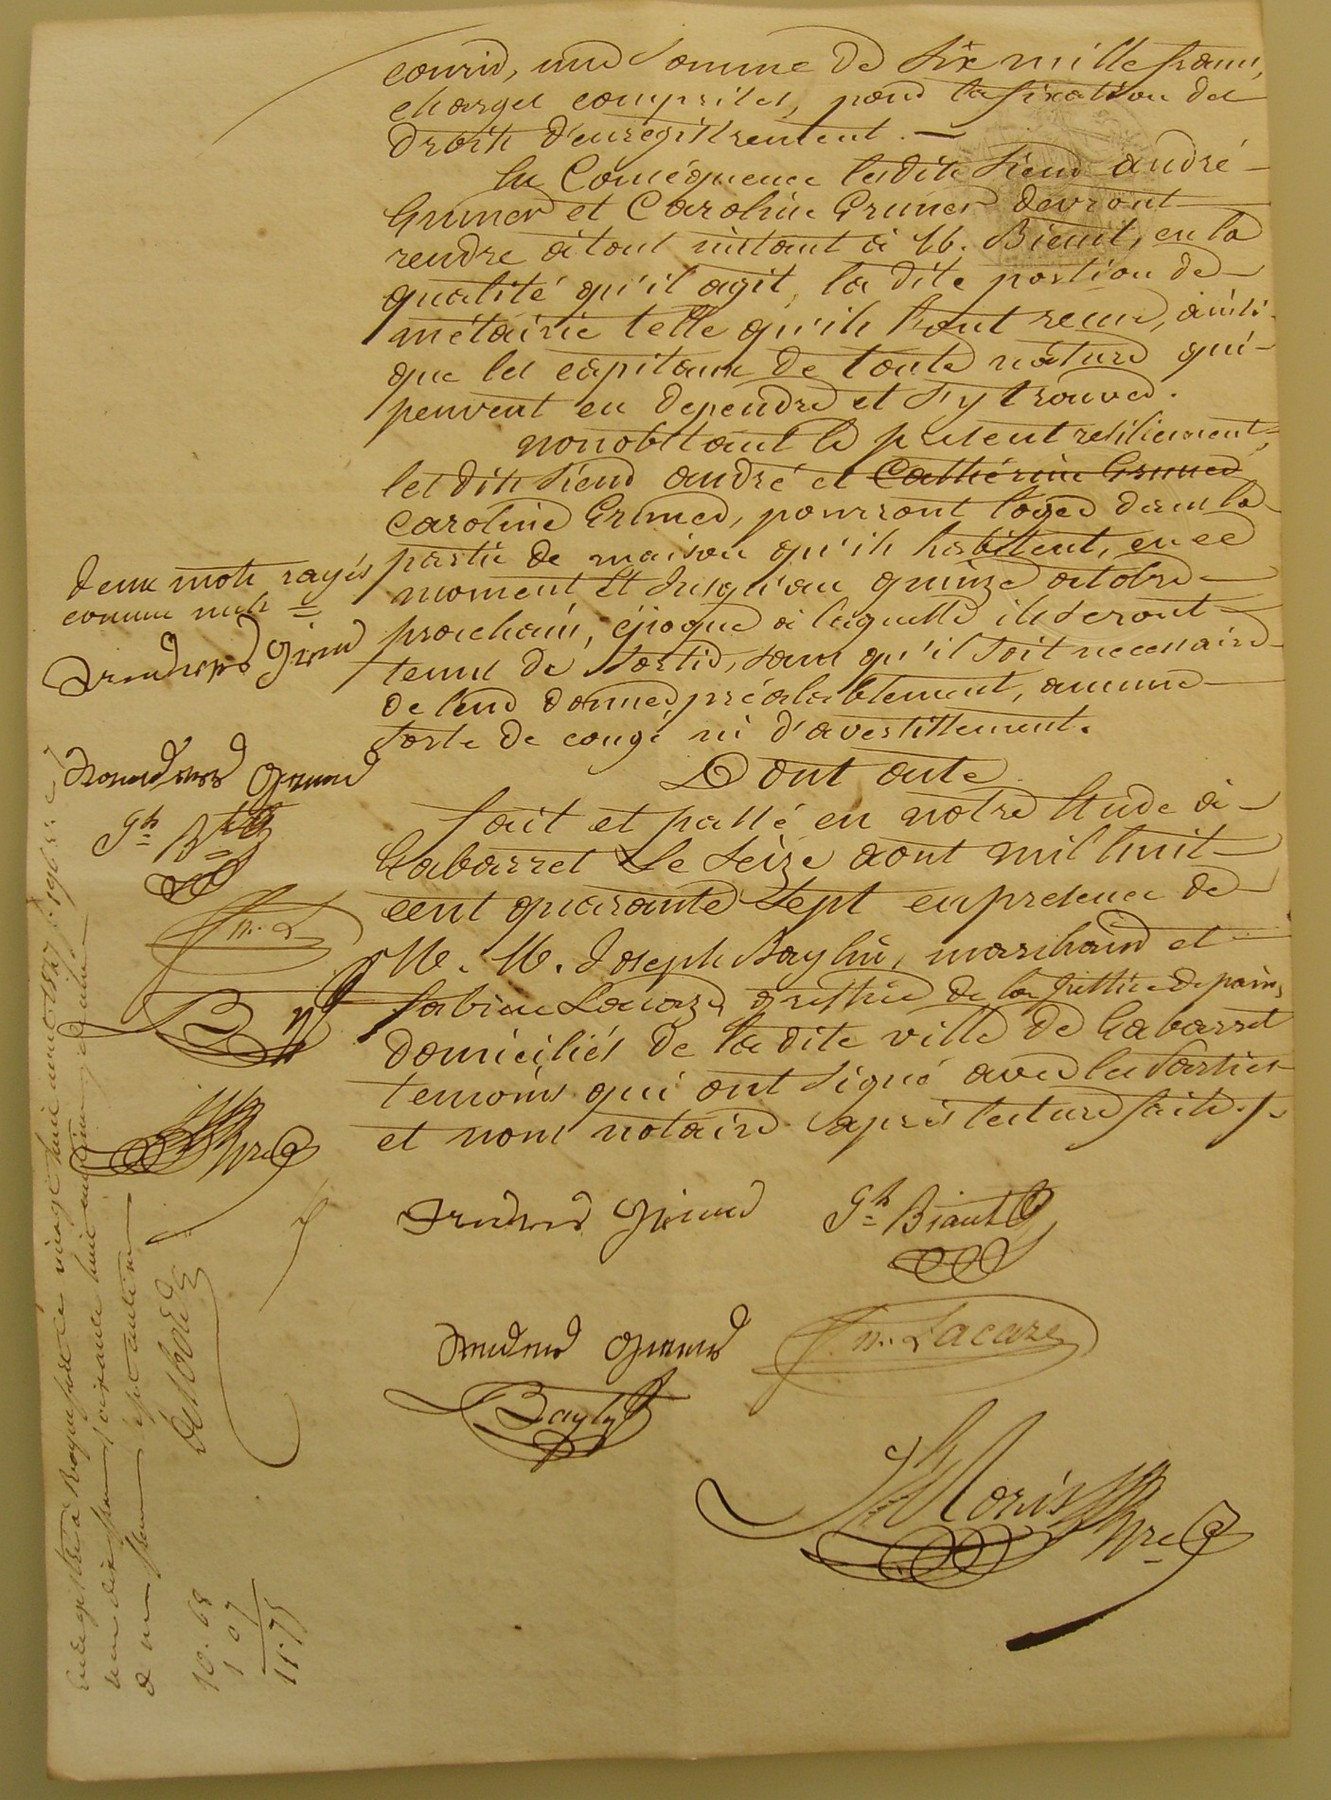 courir, une somme de six mille francs,
charges comprises, pour la fixation des
droits d'enregistrement. —
En Conséquence lesdits Sieurs andré
Gruner et Caroline Gruner devront
rendre à tout instant à M. Biaut, en la
qualité qu'il agit, la dite portion de
métairie telle qu'ils l'ont recue, ainsi
que les capitaux de toute nature qui
peuvent en dependre et s'y trouver.
nonobstant le present resiliement,
lesdits Sieurs andré et Cathérine Gruner
Caroline Gruner, pourront loger dans la
partie de maison qu'ils habitent, en ce
moment et Jusqu'au quinze octobre
prochain, époque à laquelle ils seront
tenus de sortir, sans qu'il soit necessaire
de leur donner préalablement, aucune
sorte de congé ni d'avertissement.
Dont acte
fait et passé en notre Etude à
Gabarret Le Seize aout mil huit
cent quarante Sept en presence de
M. M. Joseph Baylin, marchand et
fabien Lacaze, greffier de la justice de paix,
domiciliés de ladite ville de Gabarret
temoins qui ont signé avec les Parties
et nous notaire après lecture faite.
deux mots rayés
comme nuls
Gh Bt
fn. L
B
Nre
Gh Biaut
fn. Lacaze
Bayly
Moris Nre
Enregistré à Roquefort le
dix francs soixante huit centimes
un franc sept centimes
10. 68
1 07
11. 75